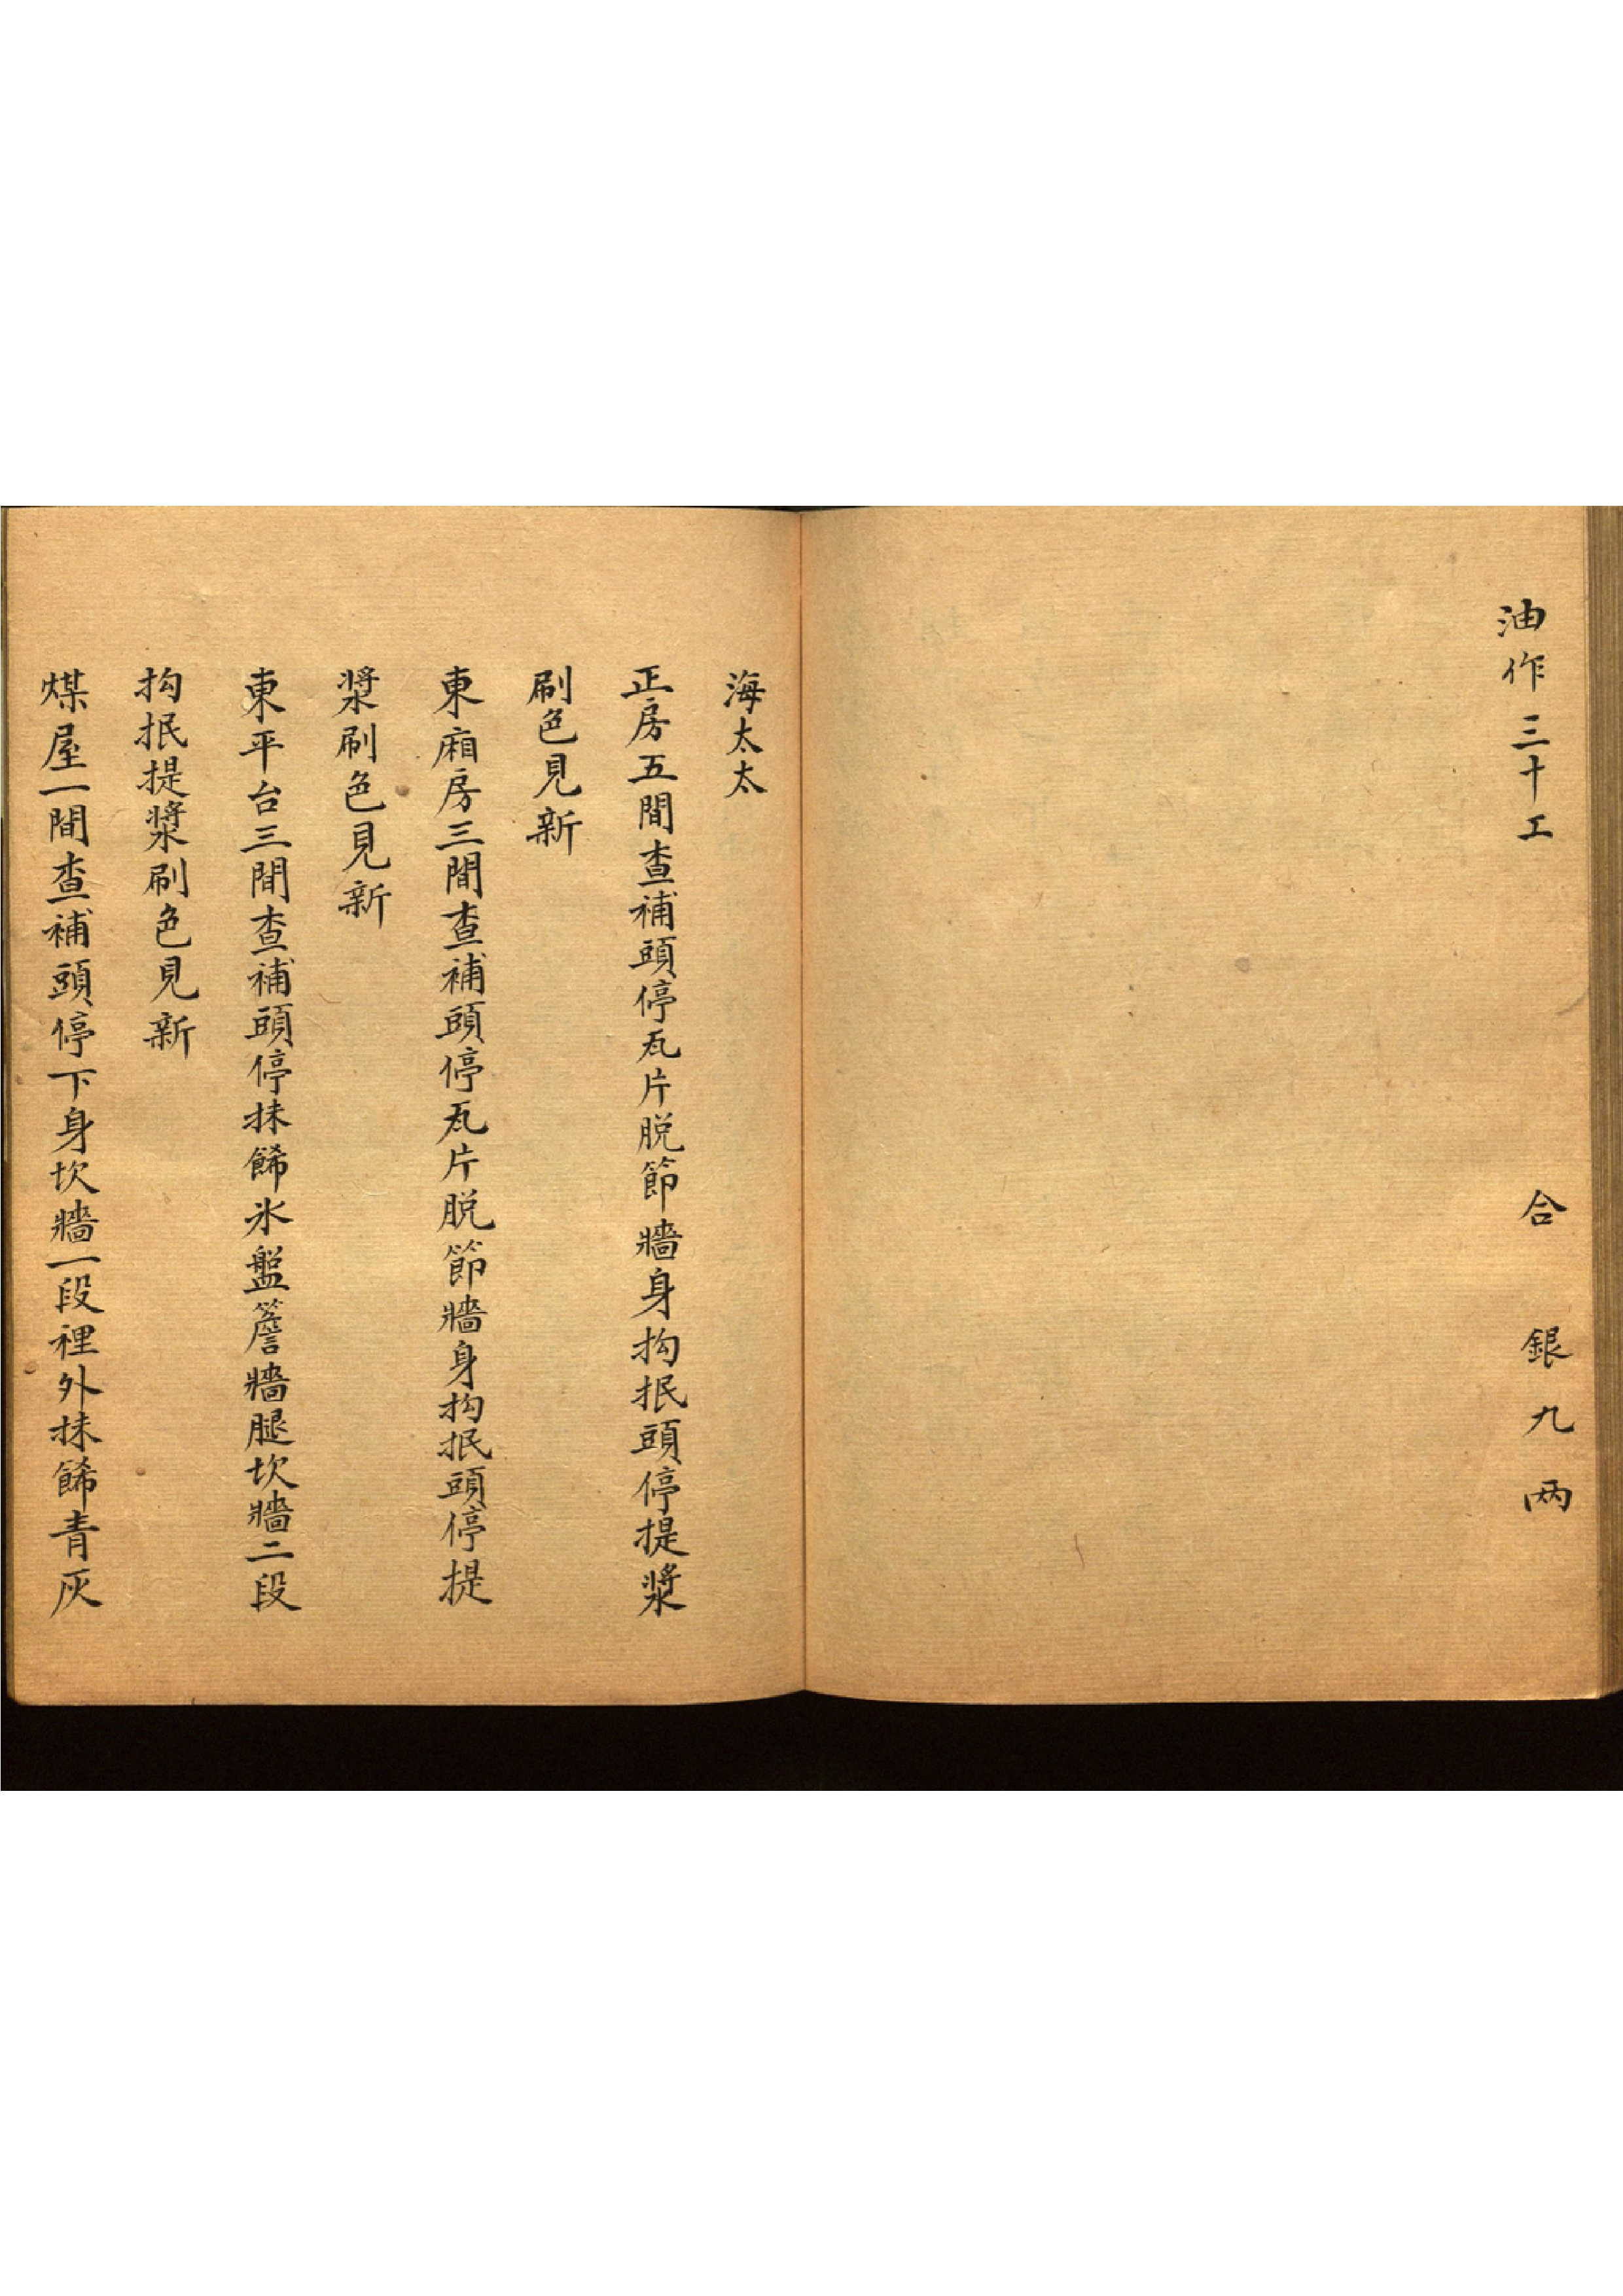 油作三十工　合　銀九两
海太太
正房五間查補頭停瓦片脱節牆身抅抿頭停提漿
刷色見新
東廂房三間查補頭停瓦片脱節牆身抅抿頭停提
漿刷色見新
東平台三間查補頭停抹餙氷盤簷牆腿坎牆二段
抅抿提漿刷色見新
煤屋一間查補頭停下身坎牆一段裡外抹餙青灰